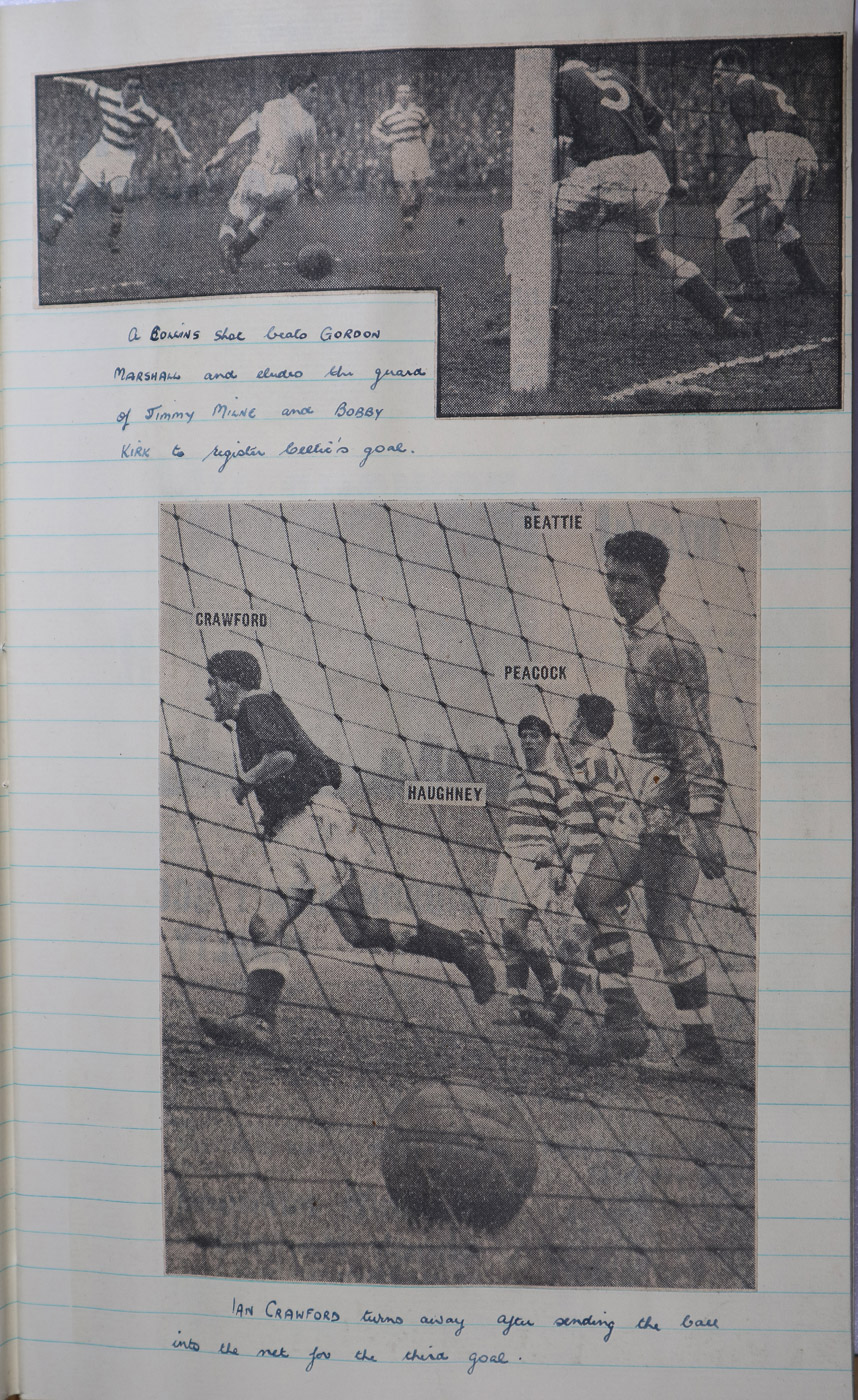 5
2
A COLLINS shot beats GORDON
MARSHALL and eludes the guard
of JIMMY MILNE and BOBBY
KIRK to register Celtic's goal.
BEATTIE
CRAWFORD
PEACOCK
HAUGHNEY
IAN CRAWFORD turns away after sending the ball
into the net for the third goal.